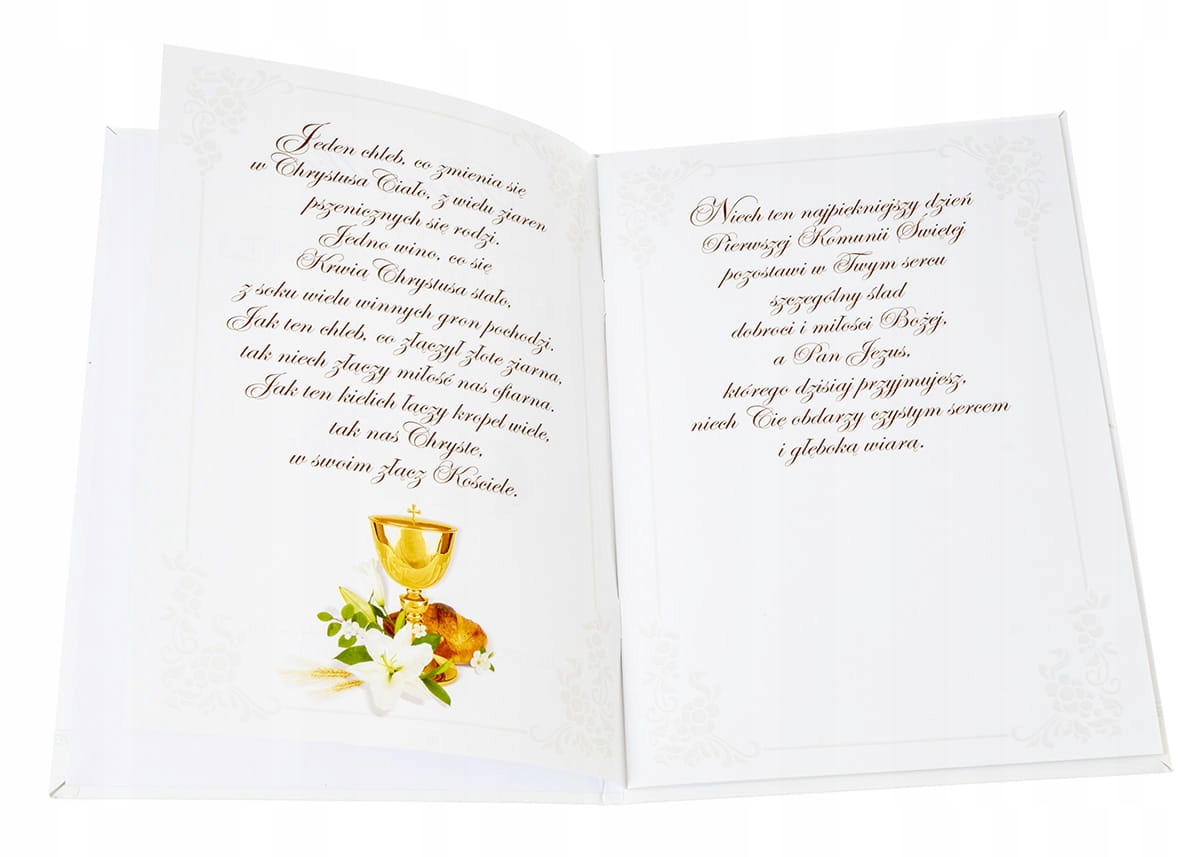 Jeden chleb, co zmienia się
w Chrystusa Ciało, z wielu ziaren
pszenicznych się rodzi.
Jedno wino, co się
Krwią Chrystusa stało,
z soku wielu winnych gron pochodzi.
Jak ten chleb, co złączył złote ziarna,
tak niech złączy miłość nas ofiarna.
Jak ten kielich łączy kropel wiele,
tak nas Chryste,
w swoim złącz Kościele.
Niech ten najpiękniejszy dzień
Pierwszej Komunii Świętej
pozostawi w Twym sercu
szczególny ślad
dobroci i miłości Bożej,
a Pan Jezus,
którego dzisiaj przyjmujesz,
niech Cię obdarzy czystym sercem
i głęboką wiarą.